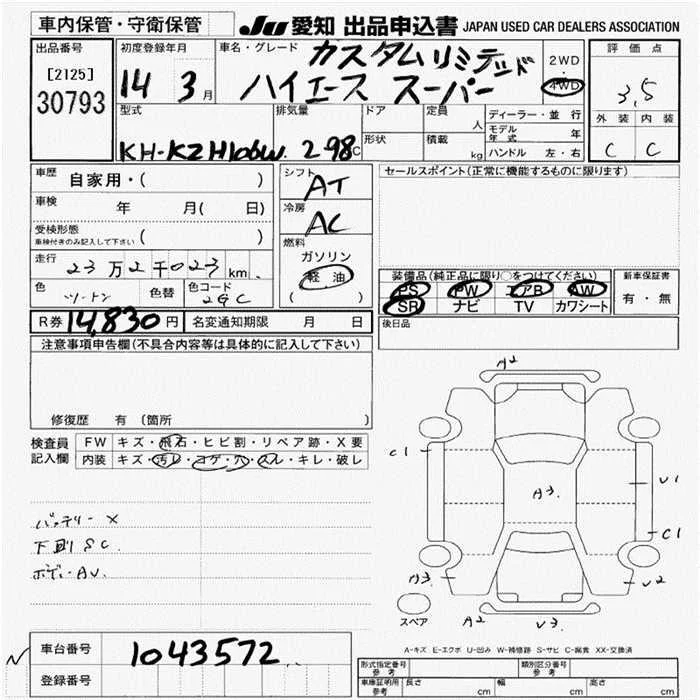 車内保管・守衛保管
JU 愛知 出品申込書 JAPAN USED CAR DEALERS ASSOCIATION
出品番号
[2125]
30793
初度登録年月
14 3月
車名・グレード
カスタムリミテッド
ハイエース スーパー
2WD
・
4WD
評価点
3,5
外装 内装
C C
型式
KH-KZH106W
排気量
298C
ドア
形状
定員 人
積載 kg
ディーラー・並行
モデル年式 年
ハンドル 左・右
車歴 自家用・( )
車検 年 月( 日)
受検形態
車検付きのみ記入して下さい ( )
走行 23万2千023km
色 ツートン 色替 色コード 2GC
シフト AT
冷房 AC
燃料
ガソリン
軽油
( )
セールスポイント(正常に機能するものに限ります)
装備品(純正品に限り○をつけてください)
PS PW エアB AW
SR ナビ TV カワシート
新車保証書
有・無
R券 14,830円 名変通知期限 月 日
後日品
注意事項申告欄(不具合内容等は具体的に記入して下さい)
修復歴 有 (箇所 )
検査員記入欄
FW キズ・飛石・ヒビ割・リペア跡・X要
内装 キズ・汚レ・コゲ・穴・スレ・キレ・破レ
バッテリーX
下廻りSC
ボディAU
A2
C1
A3.
U1
C1
A3
U2
A2
U3
スペア
A-キズ E-エクボ U-凹み W-補修跡 S-サビ C-腐食 XX-交換済
N
車台番号 1043572
登録番号
形式指定番号 参考
類別区分番号 参考
車庫証明用 参考 長さ cm 幅 cm 高さ cm